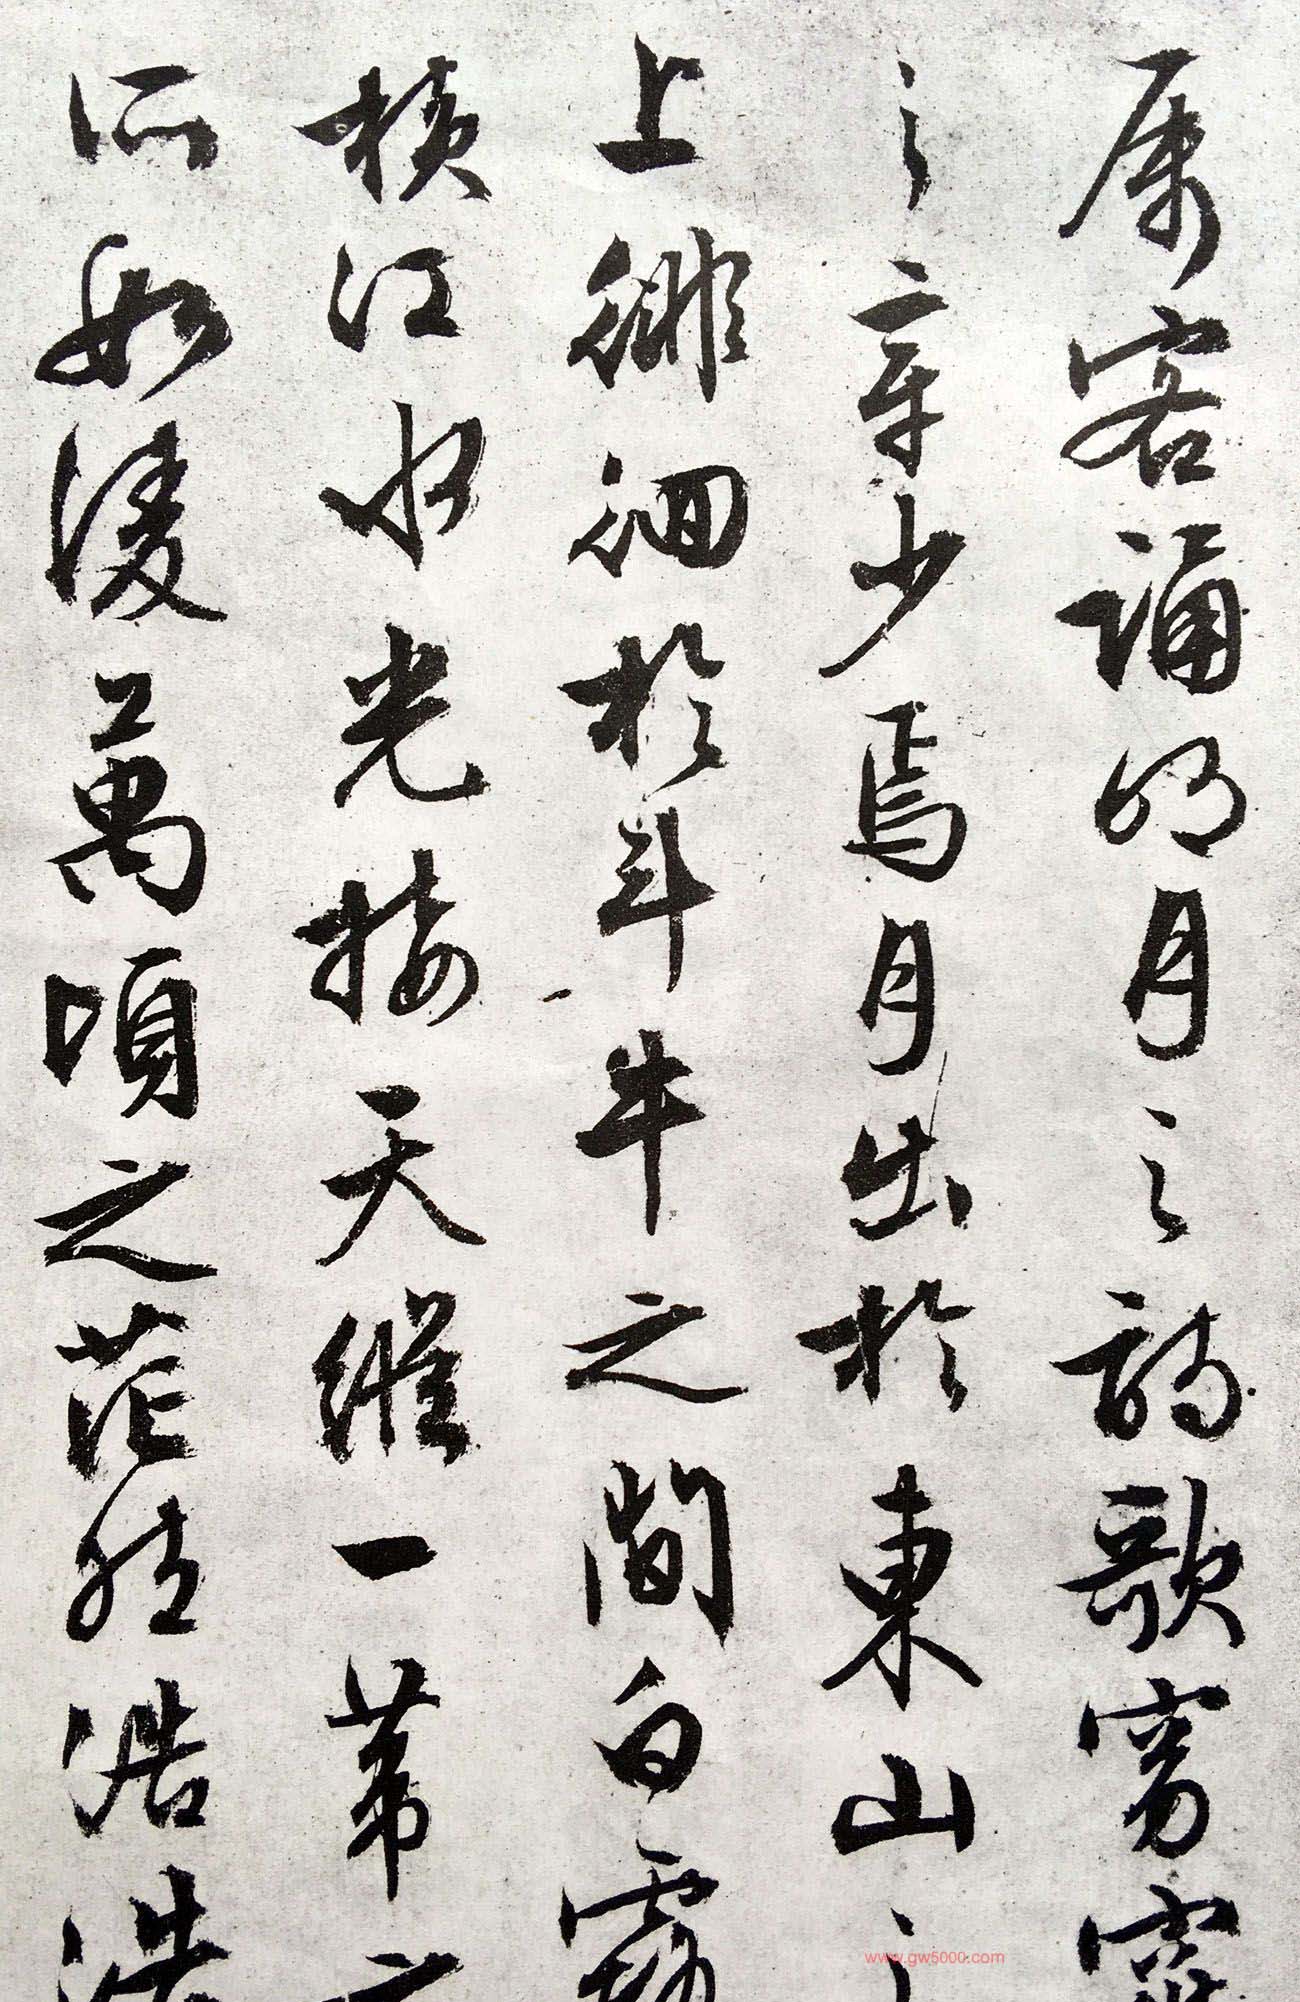 属客誦明月之詩歌窈窕
之章少焉月出於東山之
上徘徊於斗牛之間白露
横江水光接天縱一葦之
所如凌萬頃之茫然浩浩
www.gw5000.com